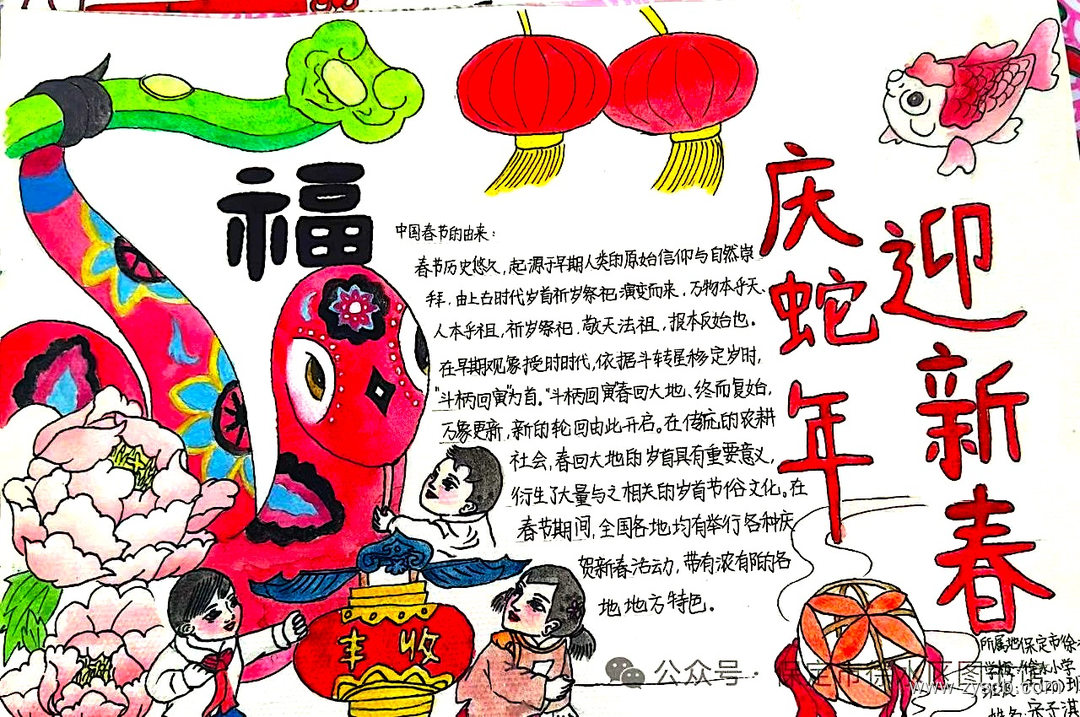 福
庆蛇年
迎新春
中国春节的由来:
春节历史悠久,起源于早期人类的原始信仰与自然崇
拜,由上古时代岁首祈岁祭祀演变而来,万物本乎天、
人本乎祖,祈岁祭祀、敬天法祖,报本反始也。
在早期观象授时时代,依据斗转星移定岁时,
"斗柄回寅"为首。"斗柄回寅春回大地、终而复始,
万象更新,新的轮回由此开启。在传统的农耕
社会,春回大地的岁首具有重要意义,
衍生了大量与之相关的岁首节俗文化。在
春节期间,全国各地均有举行各种庆
贺新春活动,带有浓郁的各
地地方特色。
丰收
所属地保定市徐
学校:徐水小学
班级
姓名:宋子淇
公众号·保定市徐水区图